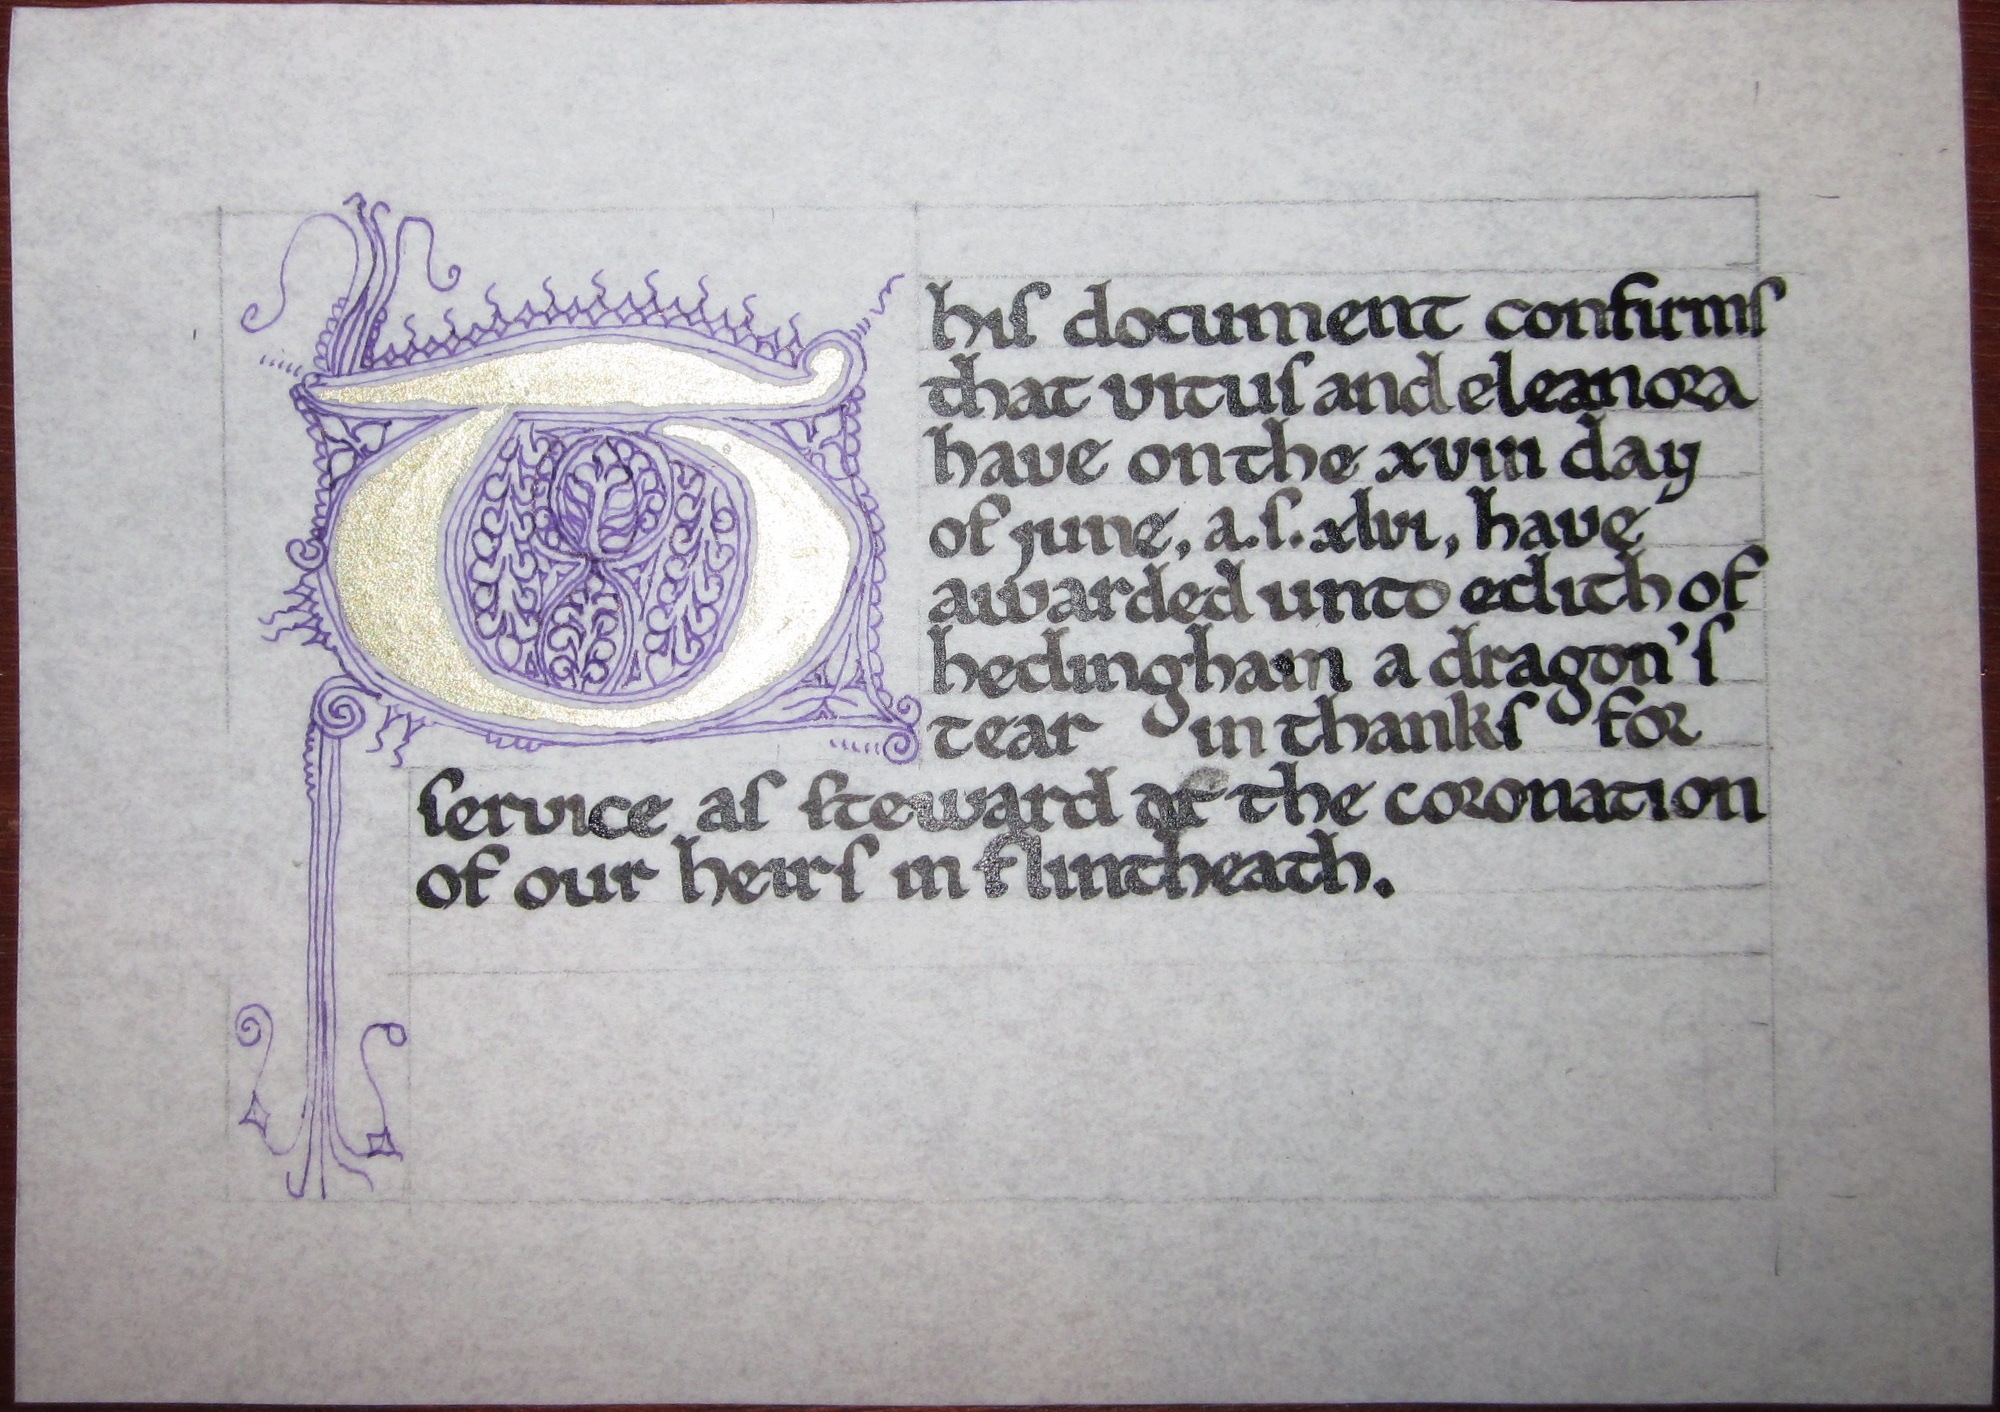 This document confirms
that vitus and eleanora
have on the xviii day
of june, a.s. xlvi, have
awarded unto edith of
hedingham a dragon's
tear in thanks for
service as steward of the coronation
of our heirs in flintheath.